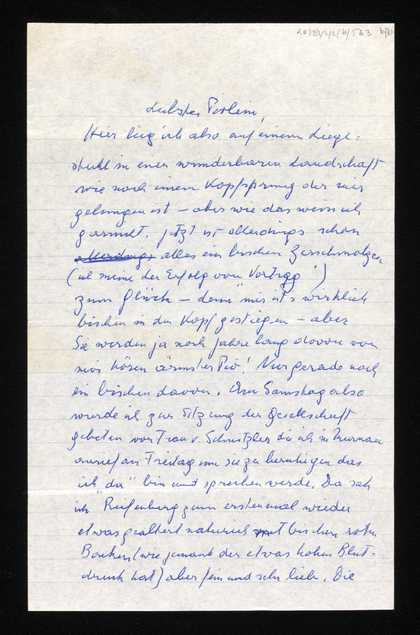 Hier lieg' ich also auf einem Liege-
stuhl in einer wunderbaren Landschaft
wie nach einem Kopfsprung der mir
gelungen ist – aber wie das weiss ich
garnicht. Jetzt ist allerdings schon
allerdings alles ein bischen zerschmolzen
(ich meine der Erfolg vom Vortrag!)
zum Glück – denn mir ist's wirklich
bischen in den Kopf gestiegen – aber
Sie werden ja noch Jahre lang davon von
mir hören ärmster Nur gerade noch
ein bischen davon. Am Samstag also
wurde ich zur Sitzung der Gesellschaft
gebeten von Frau v. Schnitzler die ich in Murnau
anrief am Freitag um sie zu beruhigen dass
ich "da" bin und sprechen werde. Da sah
ich Reifenberg zum erstenmal wieder
etwas gealtert natürlich mit bischen roten
Backen (wie jemand der etwas hohen Blut-
druck hat) aber fein und sehr lieb. Die